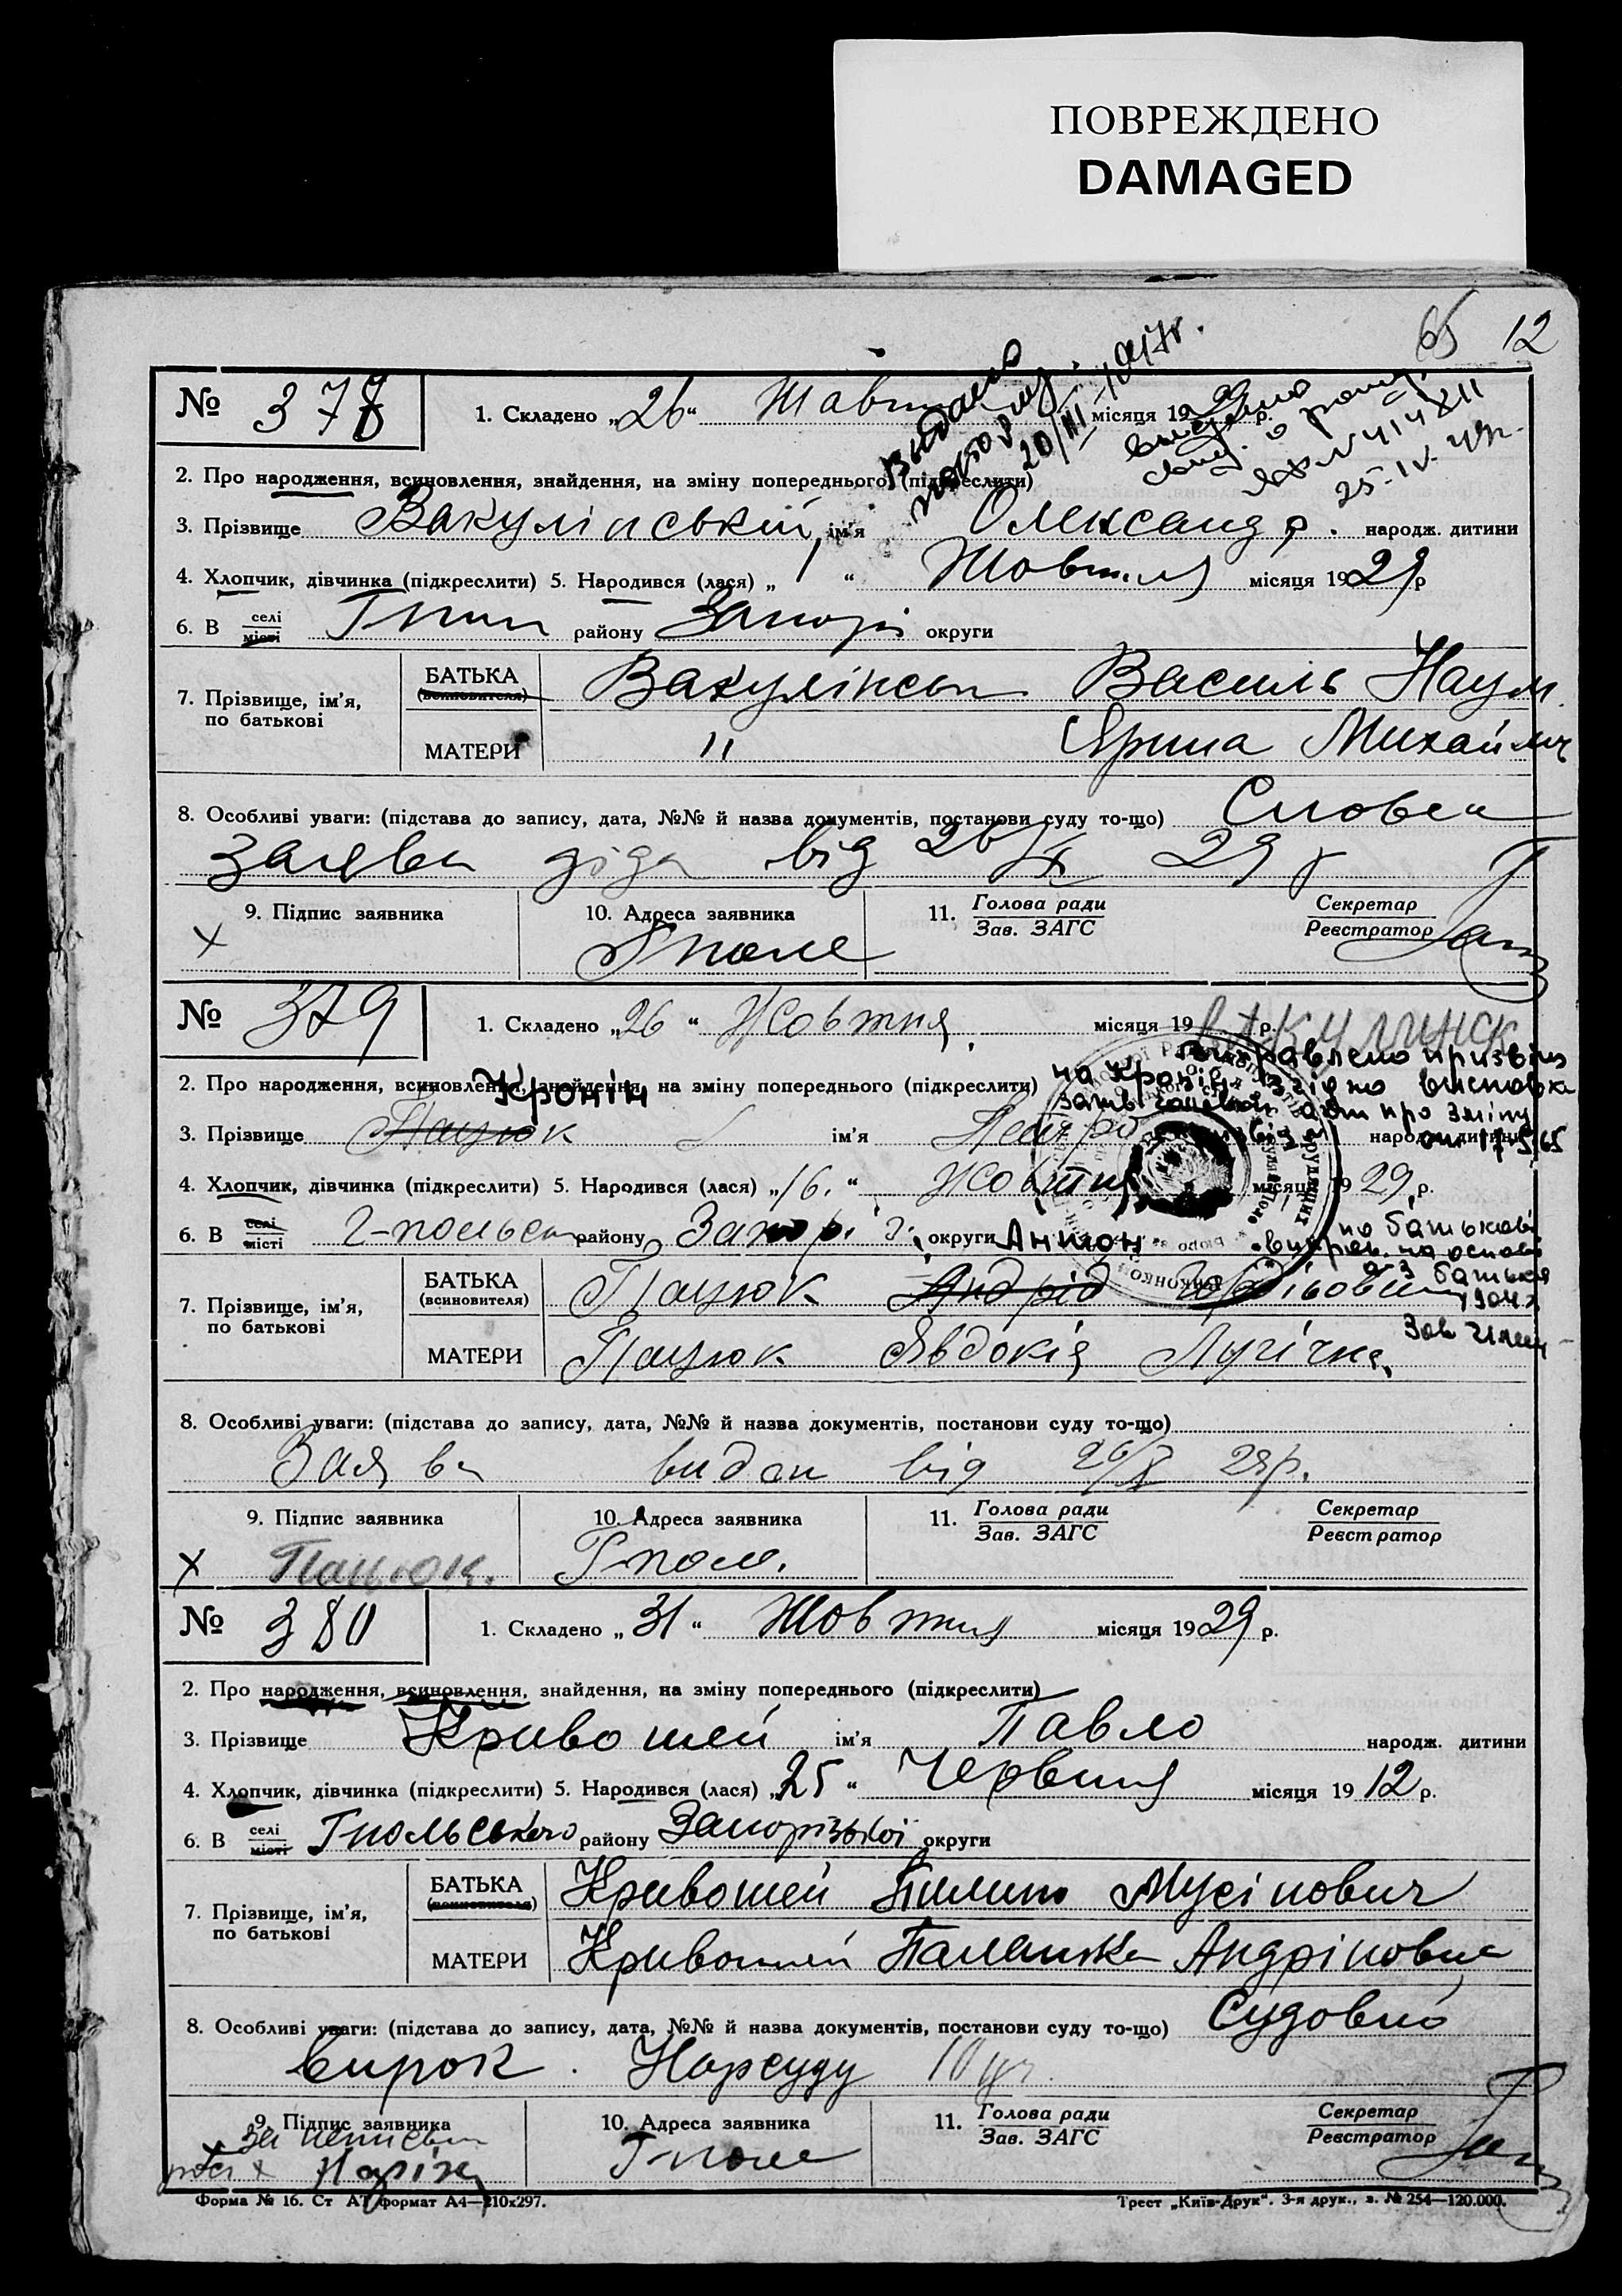 ПОВРЕЖДЕНО
DAMAGED
65 12
№ 378
1. Складено „26“ Жовтня місяця 1929 р.
Выдано повторну 20/III 1947г.
выдано свид. о рожд. № 414811 25-IV-49г.
2. Про народження, всиновлення, знайдення, на зміну попереднього (підкреслити)
3. Прізвище Вакулінський ім'я Олександр. народж. дитини
4. Хлопчик, дівчинка (підкреслити) 5. Народився (лася) „1“ Жовтня місяця 1929 р
6. В селі місті Гпол району Запорі округи
7. Прізвище, ім'я, по батькові
БАТЬКА (всиновителя) Вакулінськ Василь Наум.
МАТЕРИ " Ярина Михайлів
8. Особливі уваги: (підстава до запису, дата, №№ й назва документів, постанови суду то-що) Словесн
заява діда від 26/X 29 р
9. Підпис заявника 10. Адреса заявника 11. Голова ради Зав. ЗАГС Секретар Реєстратор
х Гполе
№ 379
1. Складено „26“ Жовтня місяця 19 р.
ВАКУЛИНСК
Виправлено призвіще
на Кронін згідно висновка
про зміну
2. Про народження, всиновлення, знайдення, на зміну попереднього (підкреслити)
Кронін
3. Прізвище Пацюк ім'я Петро народж. дитини
4. Хлопчик, дівчинка (підкреслити) 5. Народився (лася) „16.“ Жовтня місяця 1929 р.
6. В селі місті Г-польськ району Запорі округи
Антон
по батькові
виправ. на основі
батька
7. Прізвище, ім'я, по батькові
БАТЬКА (всиновителя) Пацюк Андрій
МАТЕРИ Пацюк Явдокія Лугічна
8. Особливі уваги: (підстава до запису, дата, №№ й назва документів, постанови суду то-що)
Заява видан від 26/X 29р.
9. Підпис заявника 10. Адреса заявника 11. Голова ради Зав. ЗАГС Секретар Реєстратор
х Пацюк. Г-пол.
№ 380
1. Складено „31“ Жовтня місяця 1929 р.
2. Про народження, всиновлення, знайдення, на зміну попереднього (підкреслити)
3. Прізвище Кривошей ім'я Павло народж. дитини
4. Хлопчик, дівчинка (підкреслити) 5. Народився (лася) „25“ Червня місяця 1912 р.
6. В селі місті Гпольського району Запорізької округи
7. Прізвище, ім'я, по батькові
БАТЬКА (всиновителя) Кривошей Пилип Мусійович
МАТЕРИ Кривошей Палашка Андріївна
8. Особливі уваги: (підстава до запису, дата, №№ й назва документів, постанови суду то-що) Судовий
вирок. Нарсуду 10 уч.
9. Підпис заявника 10. Адреса заявника 11. Голова ради Зав. ЗАГС Секретар Реєстратор
Гполе
Форма № 16. Ст АТ формат А4—210х297.
Трест „Київ-Друк“. 3-я друк., з. № 254—120.000.